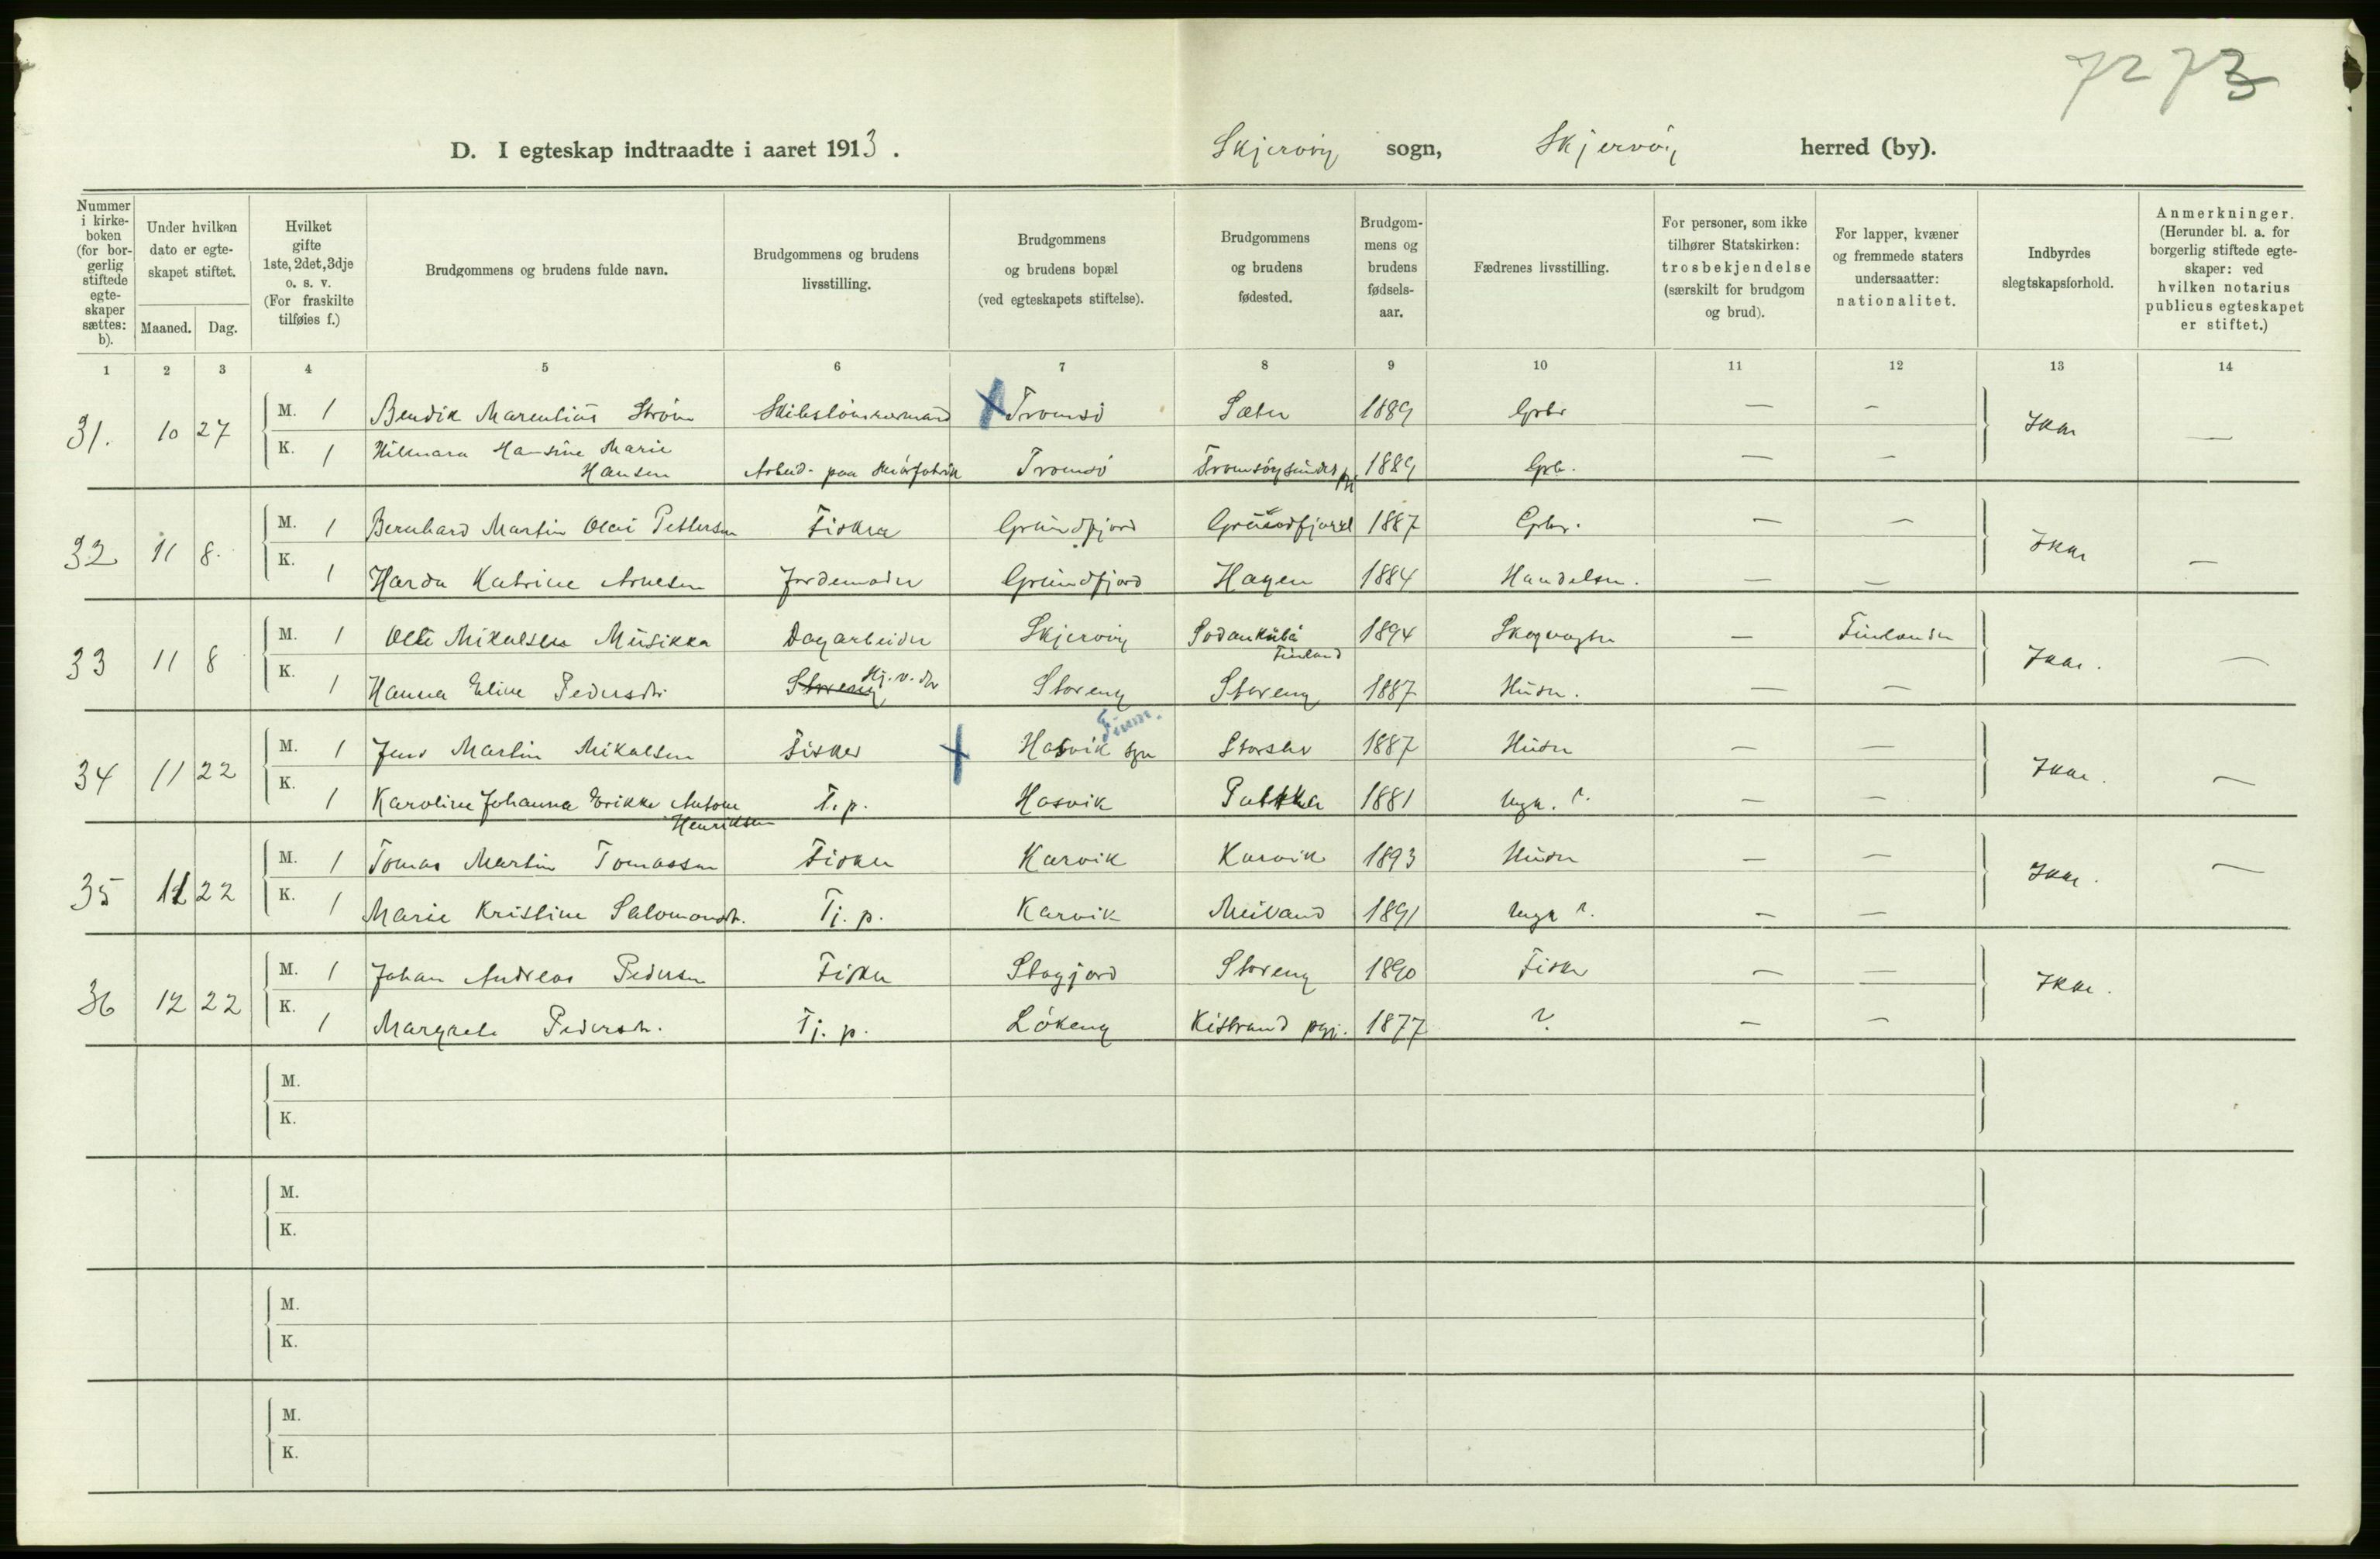 7273
D. I egteskap indtraadte i aaret 1913. Skjervöy sogn, Skjervöy herred (by).
Nummer i kirke-boken (for bor-gerlig stiftede egte-skaper sættes: b).
Under hvilken dato er egte-skapet stiftet.
Maaned. Dag.
Hvilket gifte 1ste, 2det, 3dje o. s. v. (For fraskilte tilføies f.)
Brudgommens og brudens fulde navn.
Brudgommens og brudens livsstilling.
Brudgommens og brudens bopæl (ved egteskapets stiftelse).
Brudgommens og brudens fødested.
Brudgom-mens og brudens fødsels-aar.
Fædrenes livsstilling.
For personer, som ikke tilhører Statskirken: trosbekjendelse (særskilt for brudgom og brud).
For lapper, kvæner og fremmede staters undersaatter: nationalitet.
Indbyrdes slegtskapsforhold.
Anmerkninger. (Herunder bl. a. for borgerlig stiftede egte-skaper: ved hvilken notarius publicus egteskapet er stiftet.)
1 2 3 4 5 6 7 8 9 10 11 12 13 14
31. 10 27 M. 1 Bendik Marentius Ström Skibstömmermand Tromsö Sæter 1889 Grbr — — Ikke —
K. 1 Hilmara Hansine Marie Hansen Arbeid. paa Smörfabrik Tromsö Tromsöysundet pgj 1889 Grb. — —
32 11 8. M. 1 Bernhard Martin Olai Pettersen Fisker Grundfjord Grundfjord 1887 Grbr. — — Ikke —
K. 1 Harda Katrine Arnesen Jordemoder Grundfjord Hagen 1884 Handelsm. — —
33 11 8 M. 1 Olli Mikalsen Musikka Dagarbeider Skjervöy Sodankülä Finland 1894 Skogvogter — Finlander Ikke. —
K. 1 Hanna Eline Pedersdtr Storeng Hj. v. dtr Storeng Storeng 1887 Husm. — —
34 11 22 M. 1 Jens Martin Mikalsen Fisker Hasvik sgn Finm. Storslet 1887 Husm — — Ikke. —
K. 1 Karoline Johanna Erikke Antone Henriksen T. p. Hasvik 1881 Ugk. ?. — —
35 11 22 M. 1 Tomas Martin Tomassen Fisker Karvik Karvik 1893 Husm — — Ikke. —
K. 1 Marie Kristine Salomonsdt. Tj. p. Karvik Meiland 1891 Ugk ?. — —
36 12 22 M. 1 Johan Andreas Pedersen Fisker Stogjord Storeng 1890 Fisker — — Ikke.
K. 1 Margrete Pedersdt. Tj. p. Lökeng Kistrand pgj. 1877 ?. — —
M.
K.
M.
K.
M.
K.
M.
K.